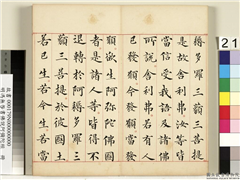 耨多羅三藐三菩提
是故舍利弗汝等皆
當信受我語及諸佛
所說舍利弗若有人
已發願今發願當發
願欲生阿彌陀佛國
者是諸人等皆得不
退轉於阿耨多羅三
藐三菩提於彼國土
若已生若今生若當
21